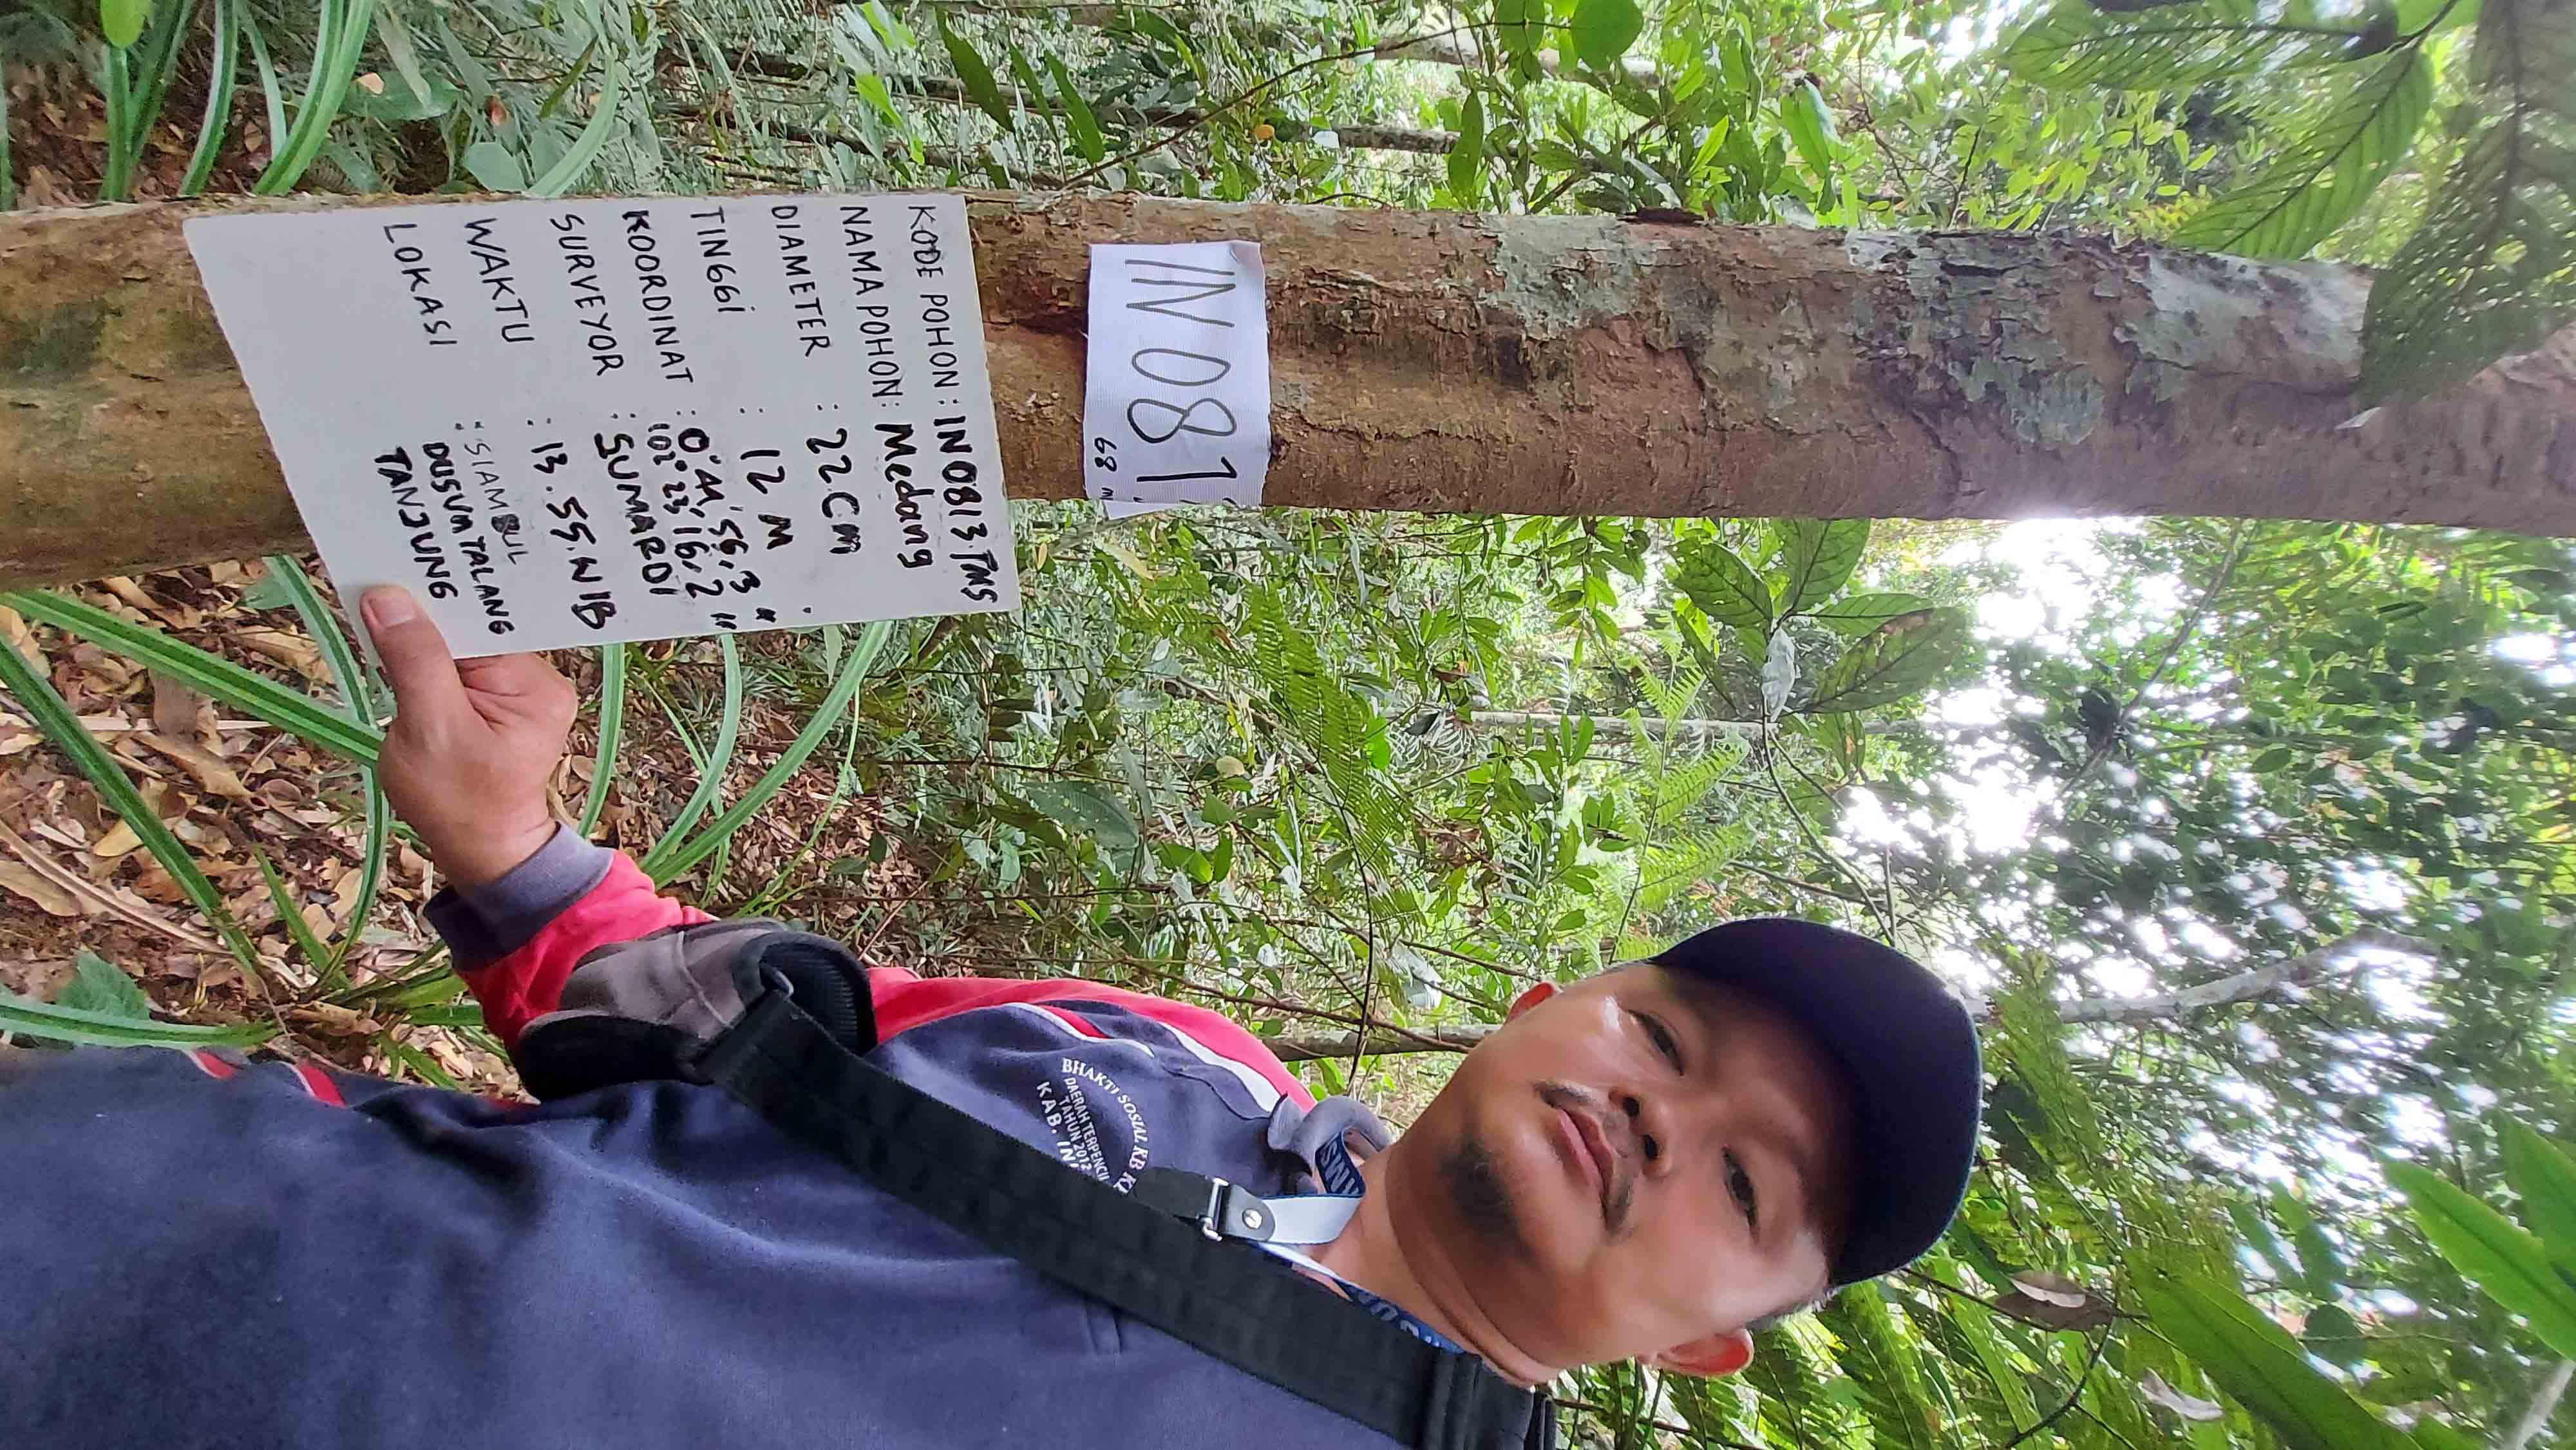 KODE POHON : IN0813TMS
NAMA POHON : Medang
DIAMETER : 22 Cm
TINGGI : 12 M
KOORDINAT : 0°41'56,3"
102°23'16,2"
SURVEYOR : SUMARDI
WAKTU : 13.55.WIB
LOKASI : SIAMBUL
DUSUN TALANG
TANJUNG
IN081
68
BHAKTI SOSIAL KB
DAERAH TERPENCIL
TAHUN 2012
KAB.